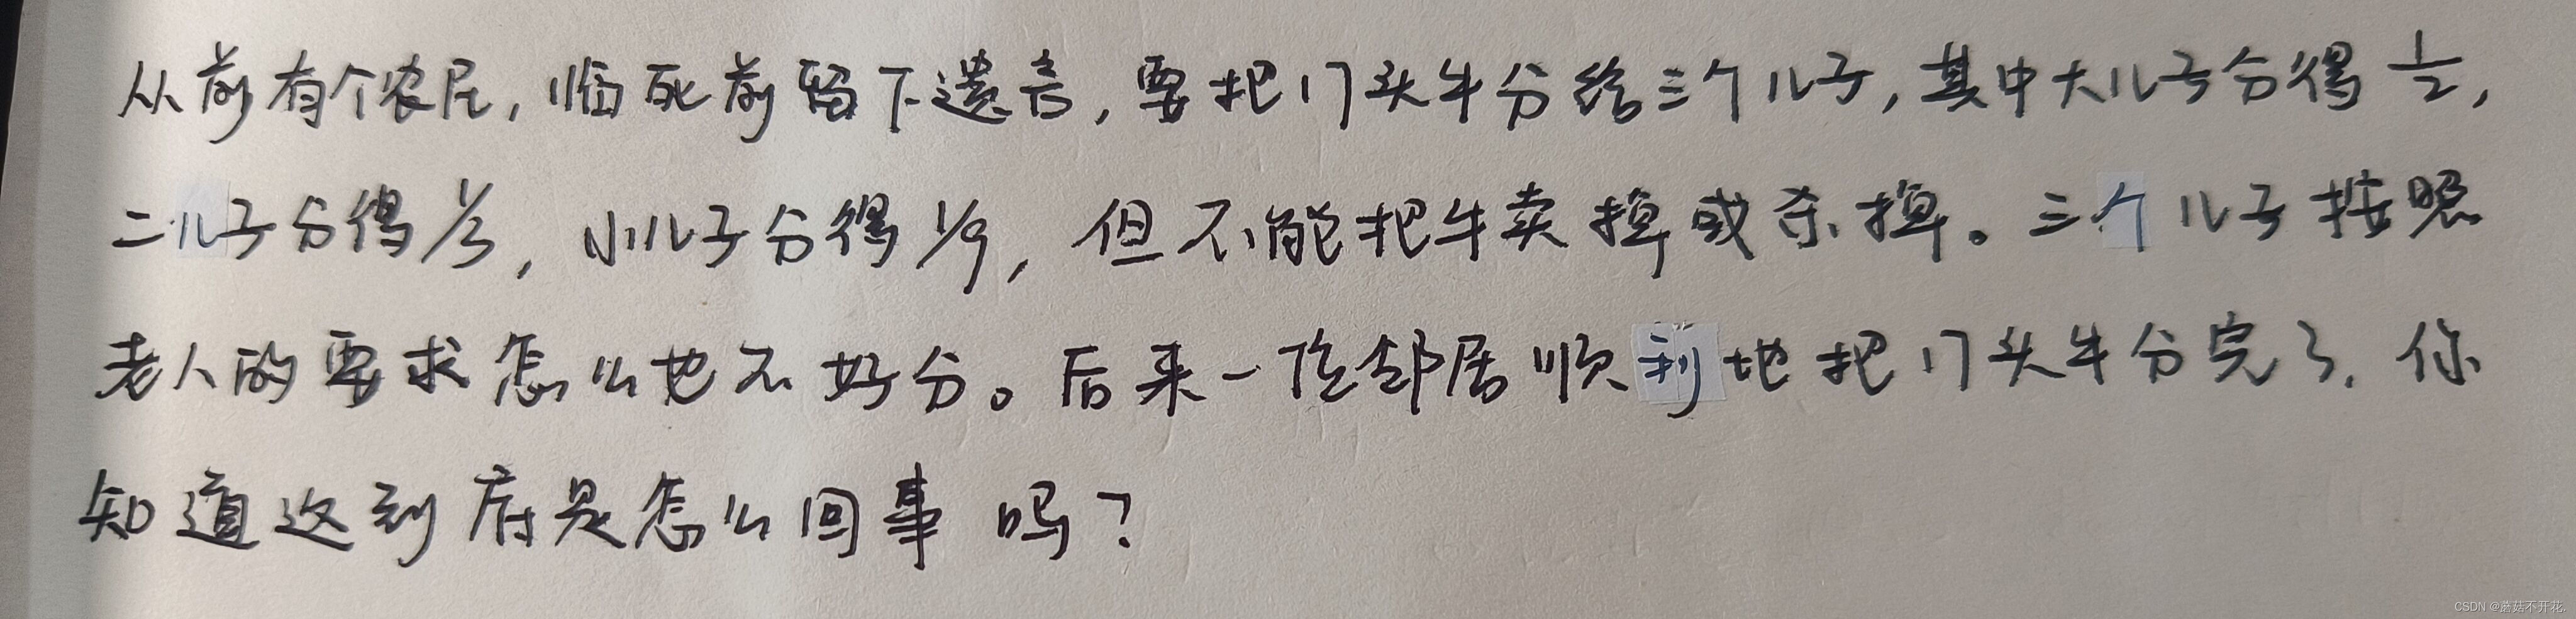 从前有个农民,临死前留下遗言,要把17头牛分给三个儿子,其中大儿子分得1/2,
二儿子分得1/3,小儿子分得1/9,但不能把牛卖掉或杀掉。三个儿子按照
老人的要求怎么也不好分。后来一位邻居顺利地把17头牛分完了,你
知道这到底是怎么回事吗?
CSDN @蘑菇不开花.